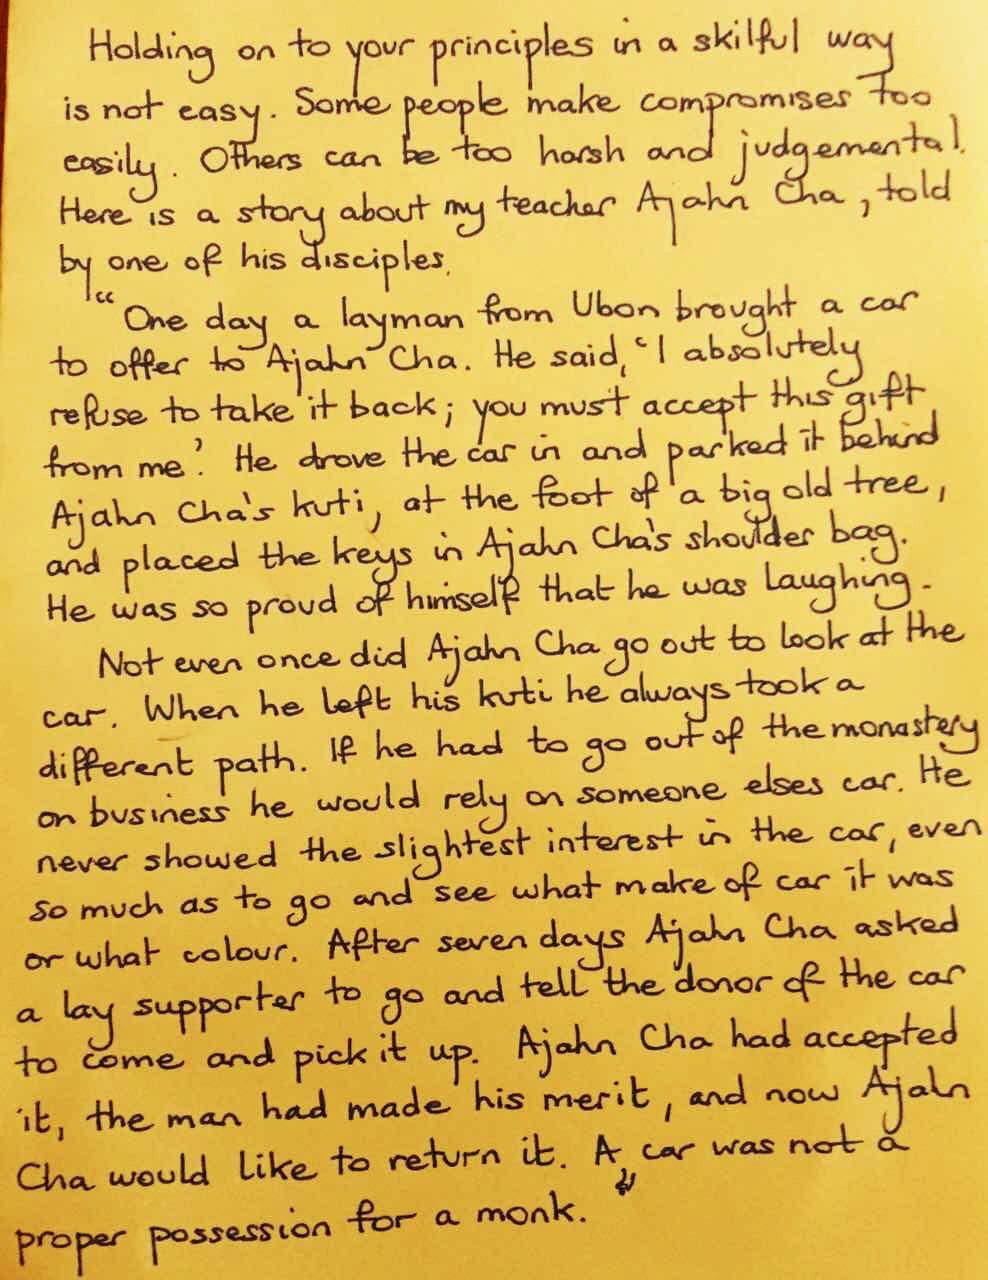 Holding on to your principles in a skilful way
is not easy. Some people make compromises too
easily. Others can be too harsh and judgemental.
Here is a story about my teacher Ajahn Cha, told
by one of his disciples.
“One day a layman from Ubon brought a car
to offer to Ajahn Cha. He said, ‘I absolutely
refuse to take it back; you must accept this gift
from me’. He drove the car in and parked it behind
Ajahn Cha's kuti, at the foot of a big old tree,
and placed the keys in Ajahn Cha's shoulder bag.
He was so proud of himself that he was laughing.
Not even once did Ajahn Cha go out to look at the
car. When he left his kuti he always took a
different path. If he had to go out of the monastery
on business he would rely on someone elses car. He
never showed the slightest interest in the car, even
so much as to go and see what make of car it was
or what colour. After seven days Ajahn Cha asked
a lay supporter to go and tell the donor of the car
to come and pick it up. Ajahn Cha had accepted
it, the man had made his merit, and now Ajahn
Cha would like to return it. A car was not a
proper possession for a monk.”